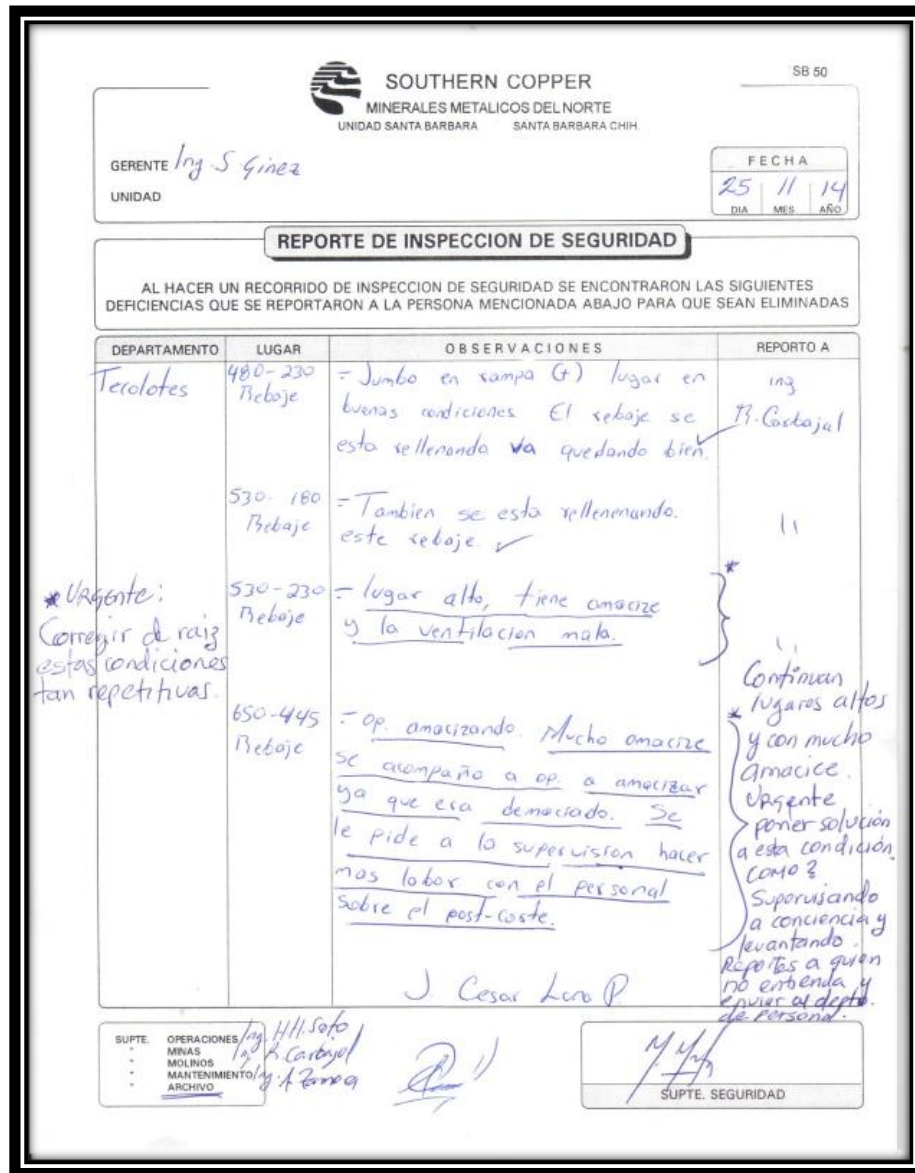 SB 50
SOUTHERN COPPER
MINERALES METALICOS DEL NORTE
UNIDAD SANTA BARBARA SANTA BARBARA CHIH.
GERENTE Ing. S. Ginez
UNIDAD
FECHA
25 11 14
DIA MES AÑO
REPORTE DE INSPECCION DE SEGURIDAD
AL HACER UN RECORRIDO DE INSPECCION DE SEGURIDAD SE ENCONTRARON LAS SIGUIENTES
DEFICIENCIAS QUE SE REPORTARON A LA PERSONA MENCIONADA ABAJO PARA QUE SEAN ELIMINADAS
DEPARTAMENTO LUGAR OBSERVACIONES REPORTO A
Tecolotes
480-230
Rebaje
= Jumbo en rampa (+) lugar en
buenas condiciones El rebaje se
esta rellenando va quedando bien.
ing
R. Carbajal
530-180
Rebaje
= Tambien se esta rellenenando.
este rebaje ✓
11
530-230
Rebaje
= lugar alto, tiene amacize
y la ventilacion mala.
*
11
* Urgente:
Corregir de raiz
estas condiciones
tan repetitivas.
650-445
Rebaje
= op. amacizando. Mucho amacize
se acompaño a op. a amacizar
ya que era demaciado. Se
le pide a la supervision hacer
mas labor con el personal
sobre el post-coste.
Continuan
* lugares altos
y con mucho
amacice.
Urgente
poner solución
a esta condición.
como?
Supervisando
a conciencia y
levantando.
Reportes a quien
no entienda y
enviar al depto.
de Personal.
J Cesar Luna P.
SUPTE. OPERACIONES Ing. H.H. Soto
" MINAS Ing. R. Carbajal
" MOLINOS
" MANTENIMIENTO Ing. A. Zamora
" ARCHIVO
SUPTE. SEGURIDAD